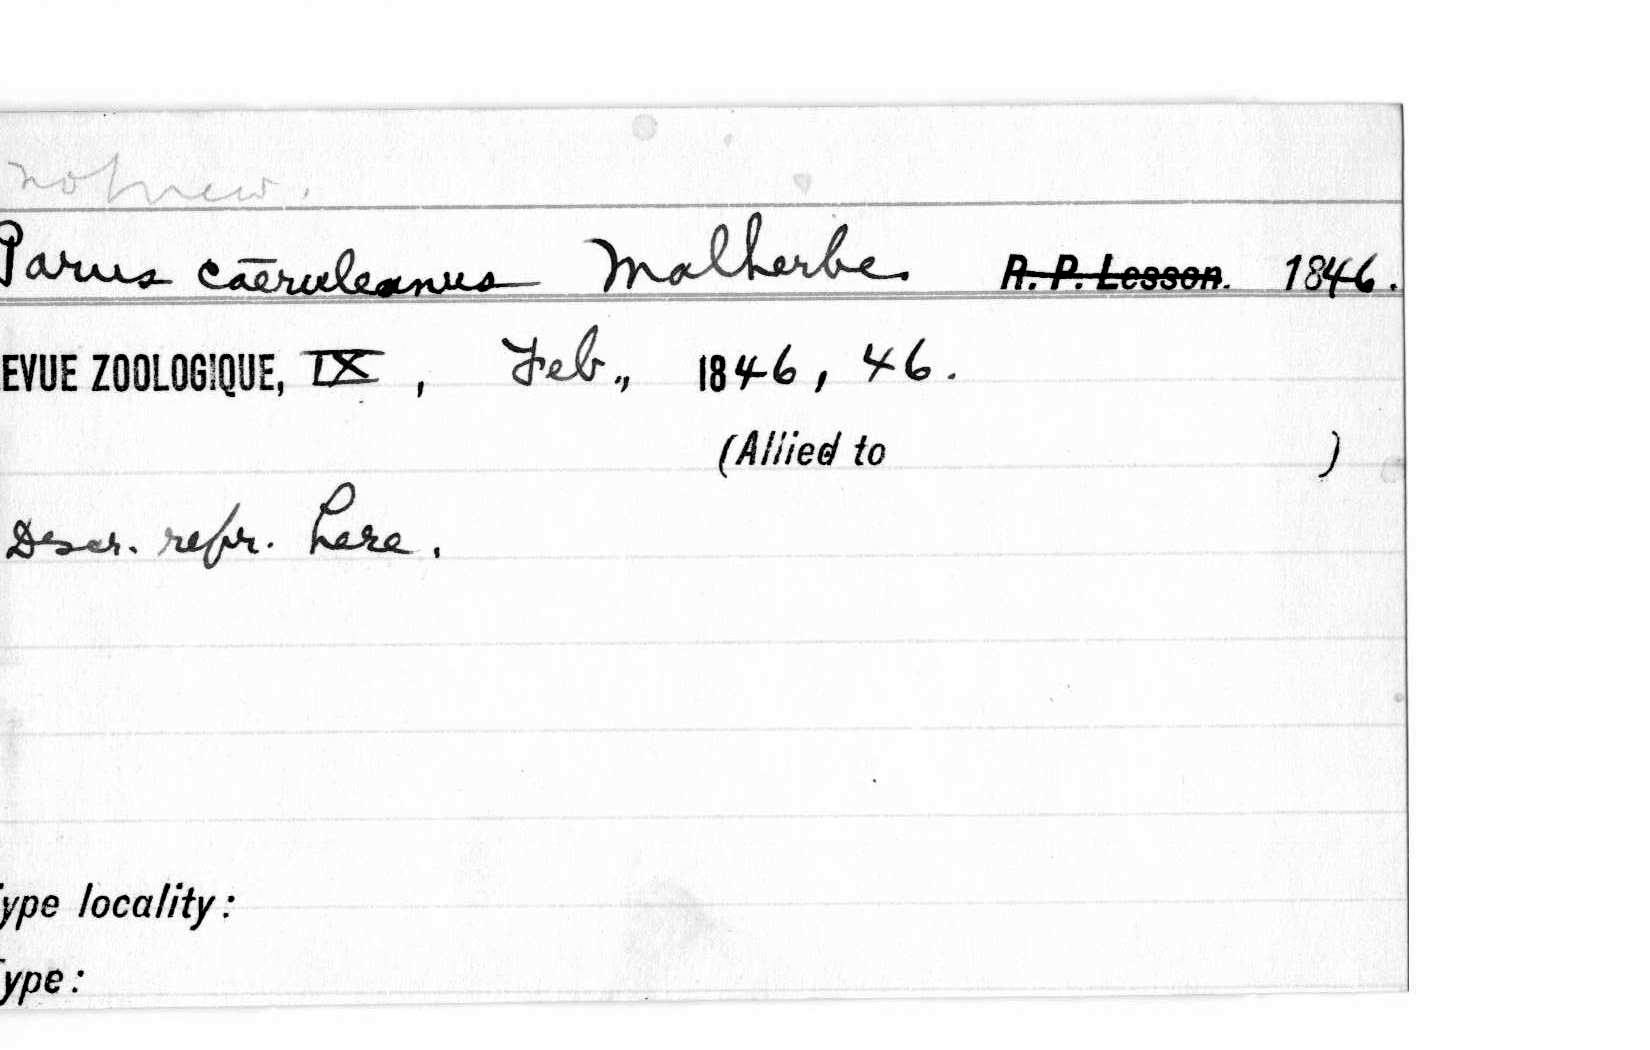 not new.
Parus cāeruleanus Malherbe. R. P. Lesson. 1846.
EVUE ZOOLOGIQUE, IX, Feb., 1846, 46.
(Allied to )
Descr. repr. here.
ype locality:
ype: